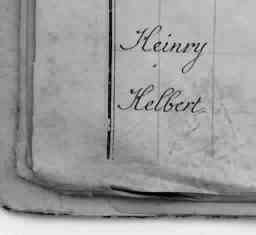 Heinry
Helbert